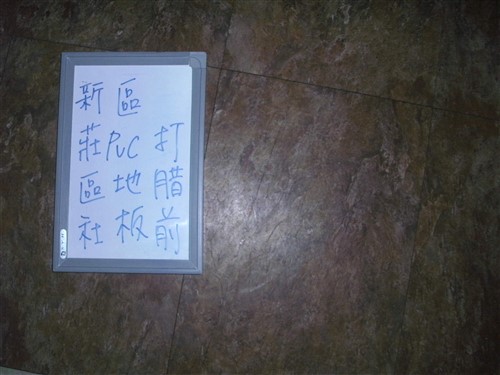 新莊區社
區PVC地板
打腊前